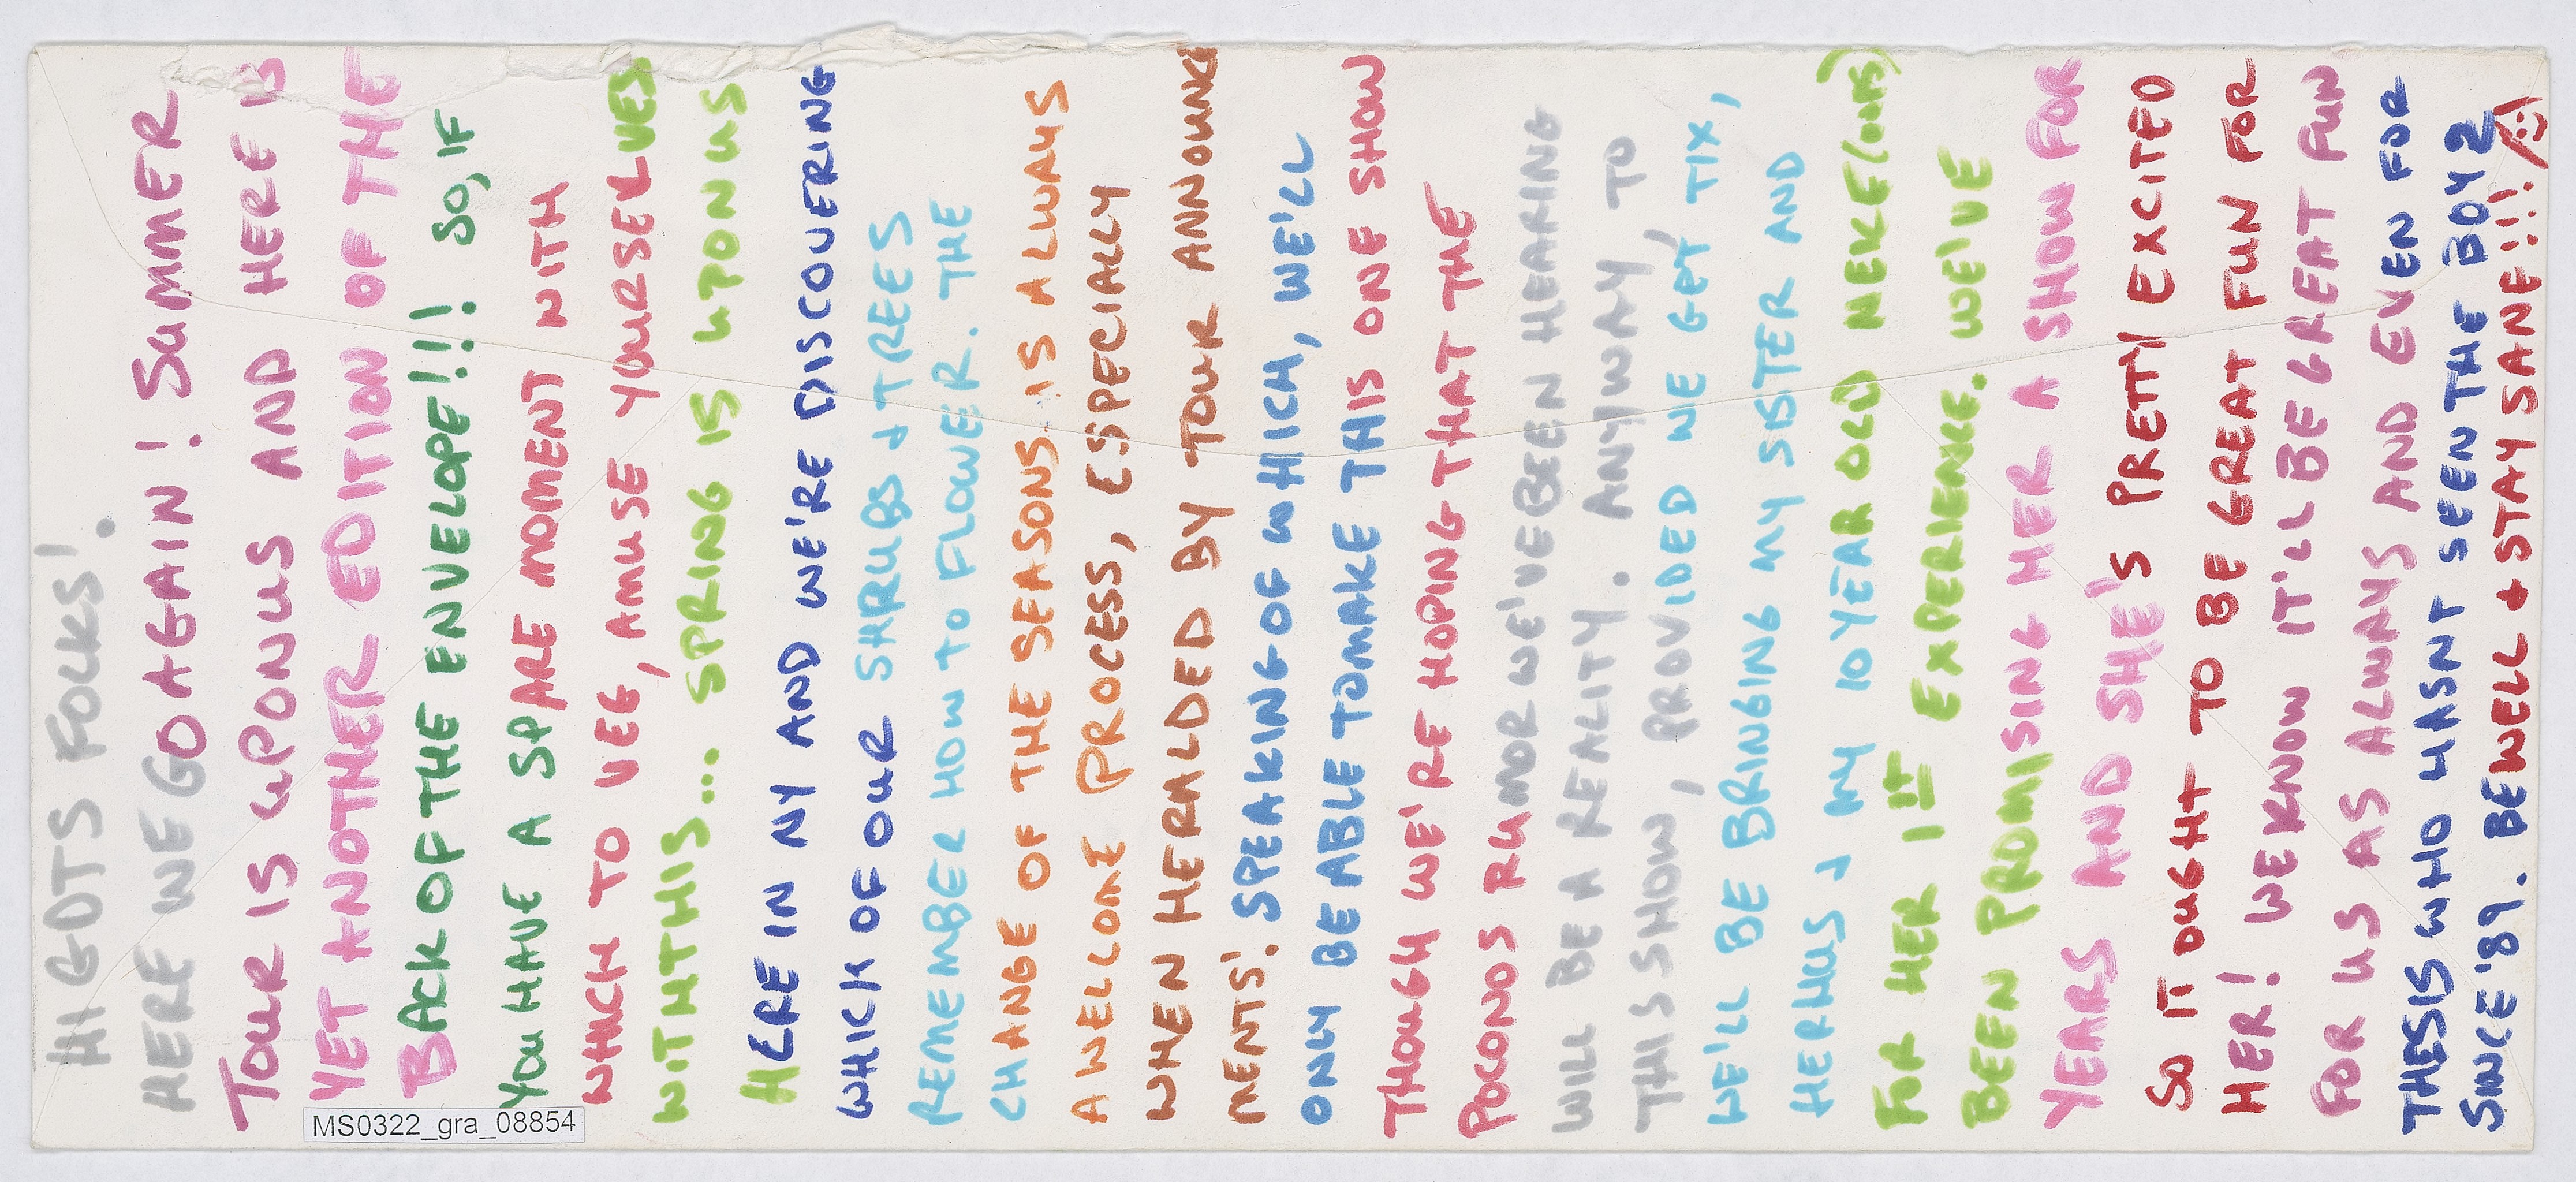 HI GDTS FOLKS!.
HERE WE GO AGAIN! SUMMER
TOUR IS UPON US AND HERE IS
YET ANOTHER EDITION OF THE
BACK OF THE ENVELOPE!!! SO, IF
YOU HAVE A SPARE MOMENT WITH
WHICH TO VEG, AMUSE YOURSELVES
WITH THIS... SPRING IS UPON US
HERE IN NY AND WE'RE DISCOVERING
WHICH OF OUR SHRUBS + TREES
REMEMBER HOW TO FLOWER. THE
CHANGE OF THE SEASONS IS ALWAYS
A WELCOME PROCESS, ESPECIALLY
WHEN HERALDED BY TOUR ANNOUNCE
MENTS'. SPEAKING OF WHICH, WE'LL
ONLY BE ABLE TO MAKE THIS ONE SHOW
THOUGH WE'RE HOPING THAT THE
POCONOS RUMOR WE'VE BEEN HEARING
WILL BE A REALITY. ANYWAY, TO
THIS SHOW, PROVIDED WE GET TIX,
WE'LL BE BRINGING MY SISTER AND
HER HUS + MY 10 YEAR OLD NEICE (OURS)
FOR HER 1ST EXPERIENCE. WE'VE
BEEN PROMISING HER A SHOW FOR
YEARS AND SHE'S PRETTY EXCITED
SO IT OUGHT TO BE GREAT FUN FOR
HER! WE KNOW IT'LL BE GREAT FUN
FOR US AS ALWAYS AND EVEN FOR
THE SIS WHO HASNT SEEN THE BOYZ
SINCE '89. BE WELL + STAY SANE!!!
MS0322_gra_08854